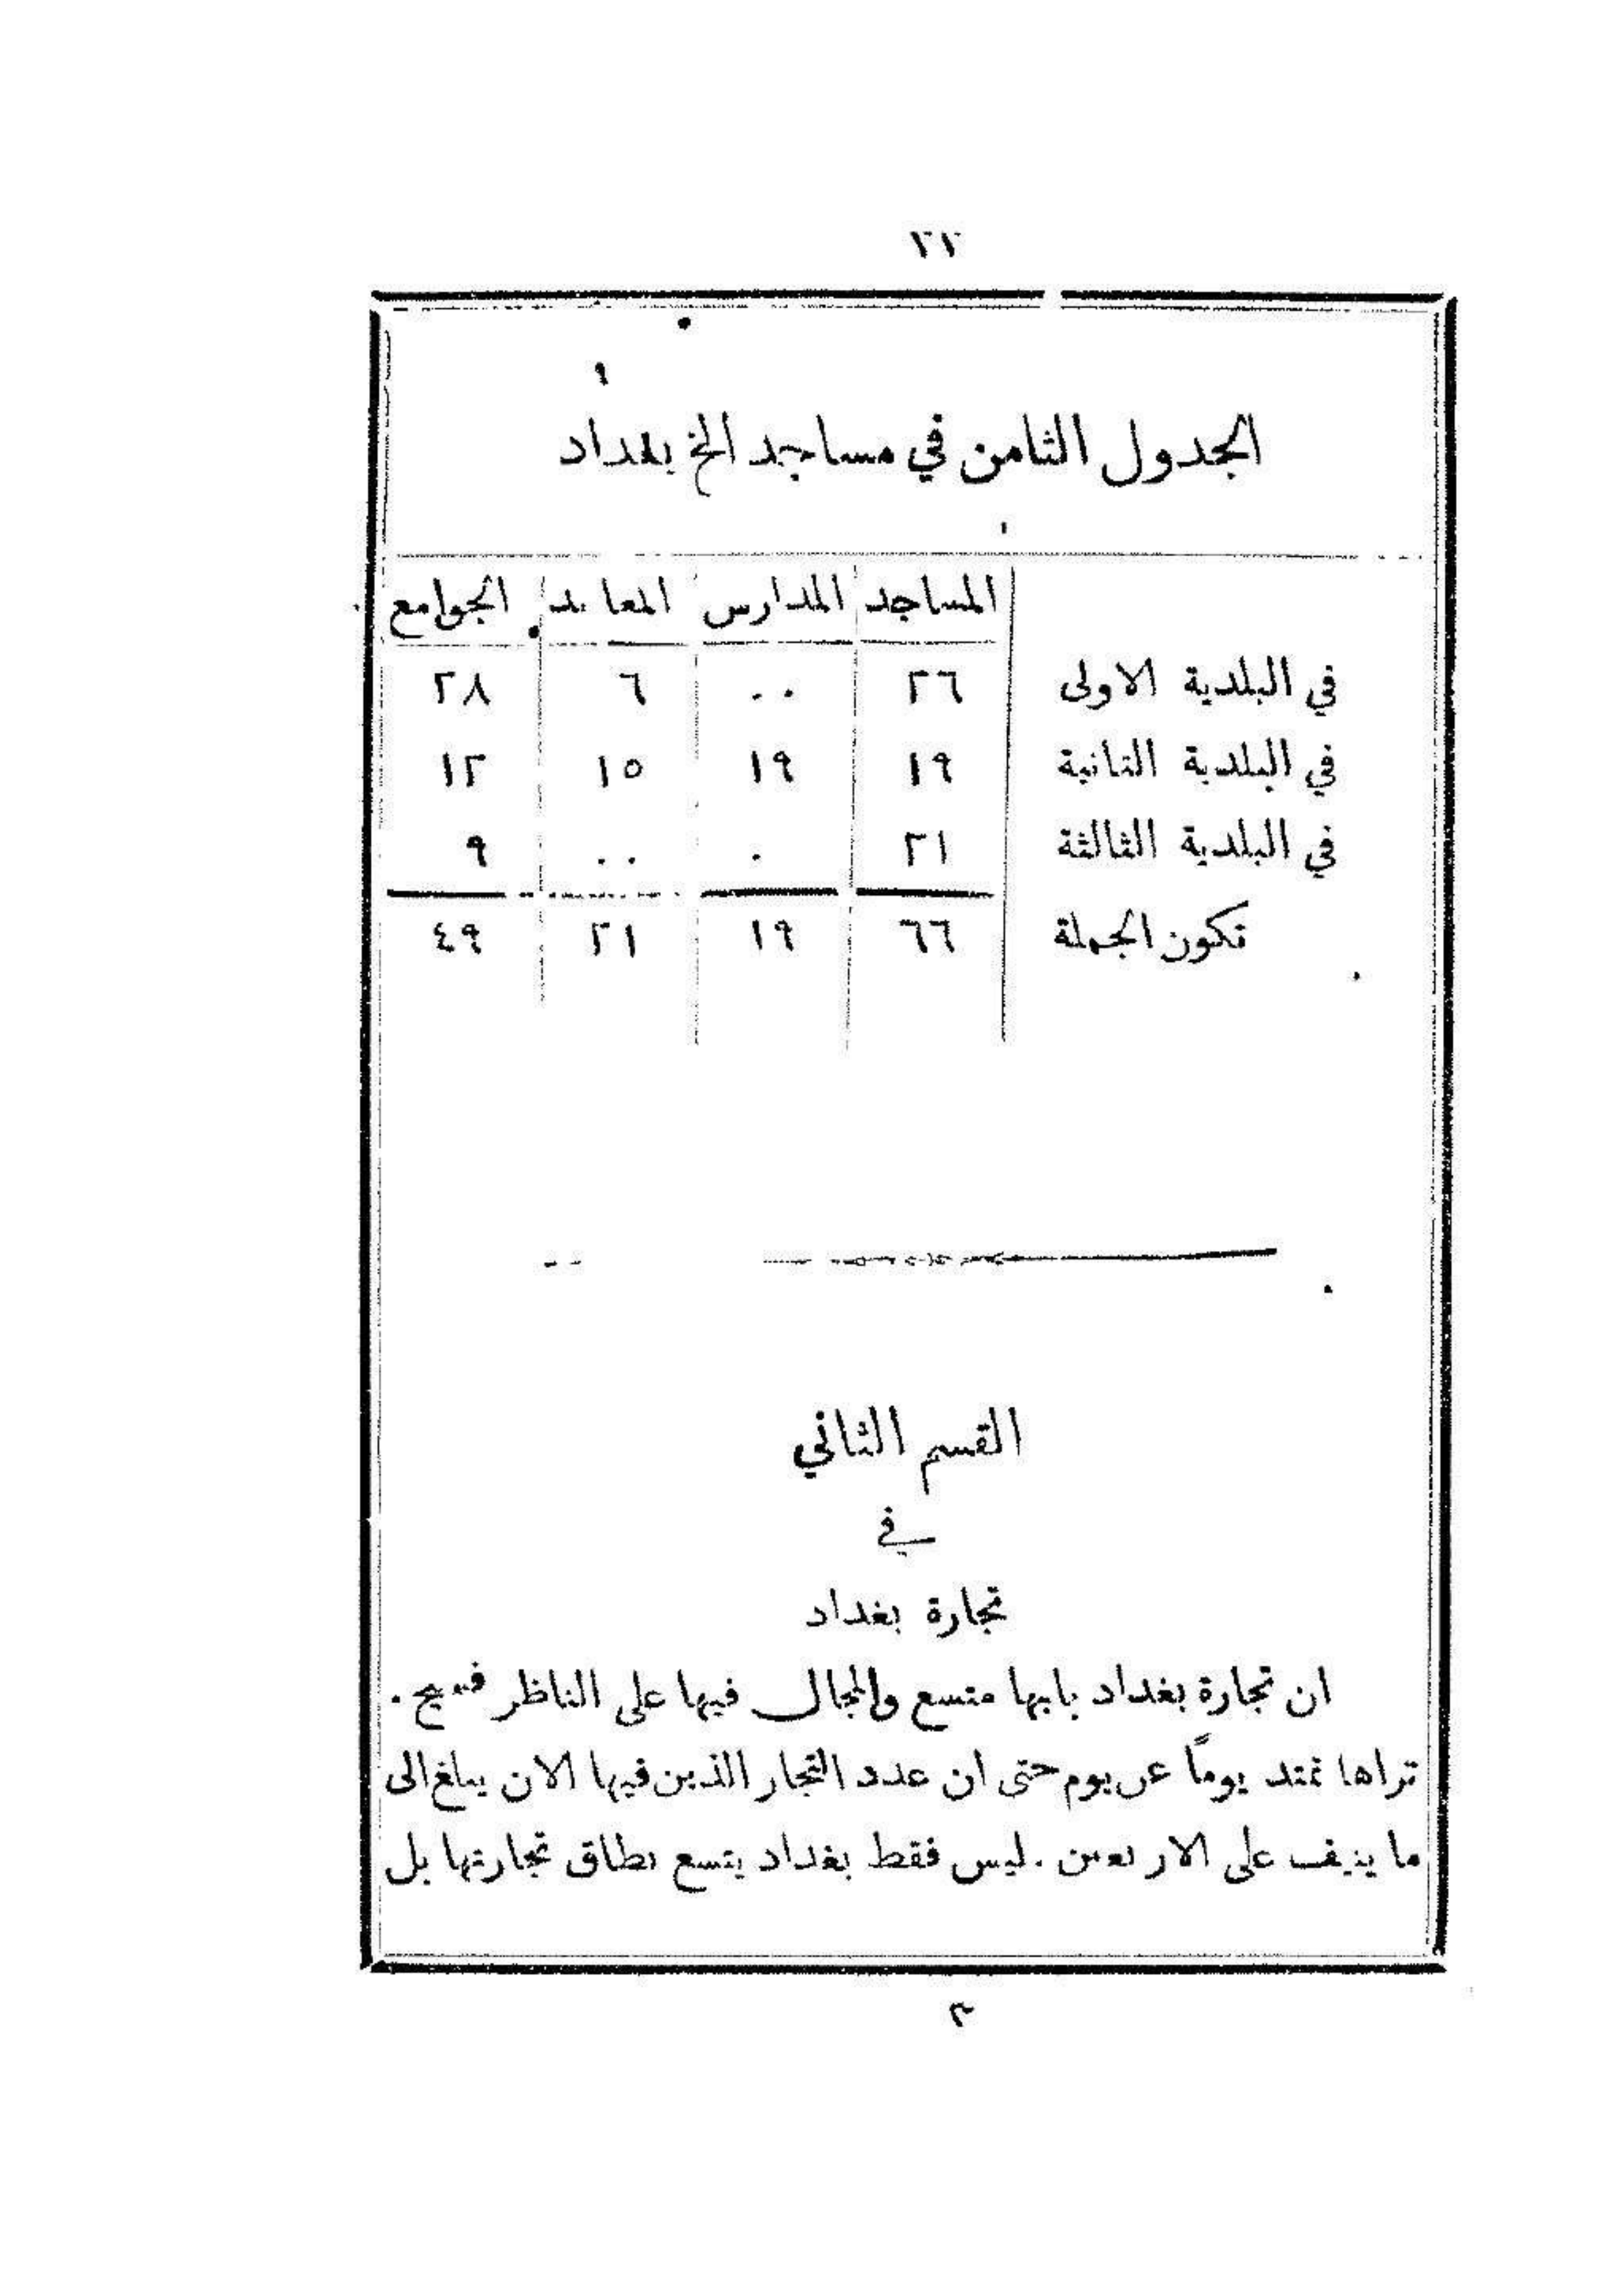 الجدول الثامن في مساجد الخ بغداد
المساجد المدارس المعابد الجوامع
في البلدية الاولى ٢٦ ٠٠ ٦ ٢٨
في البلدية الثانية ١٩ ١٩ ١٥ ١٢
في البلدية الثالثة ٢١ ٠ ٠٠ ٩
تكون الجملة ٦٦ ١٩ ٢١ ٤٩
القسم الثاني
في
تجارة بغداد
ان تجارة بغداد بابها متسع والمجال فيها على الناظر فسيح .
تراها تمتد يوماً عن يوم حتى ان عدد التجار الذين فيها الان يبلغ الى
ما ينيف على الاربعين . ليس فقط بغداد يتسع نطاق تجارتها بل
٣